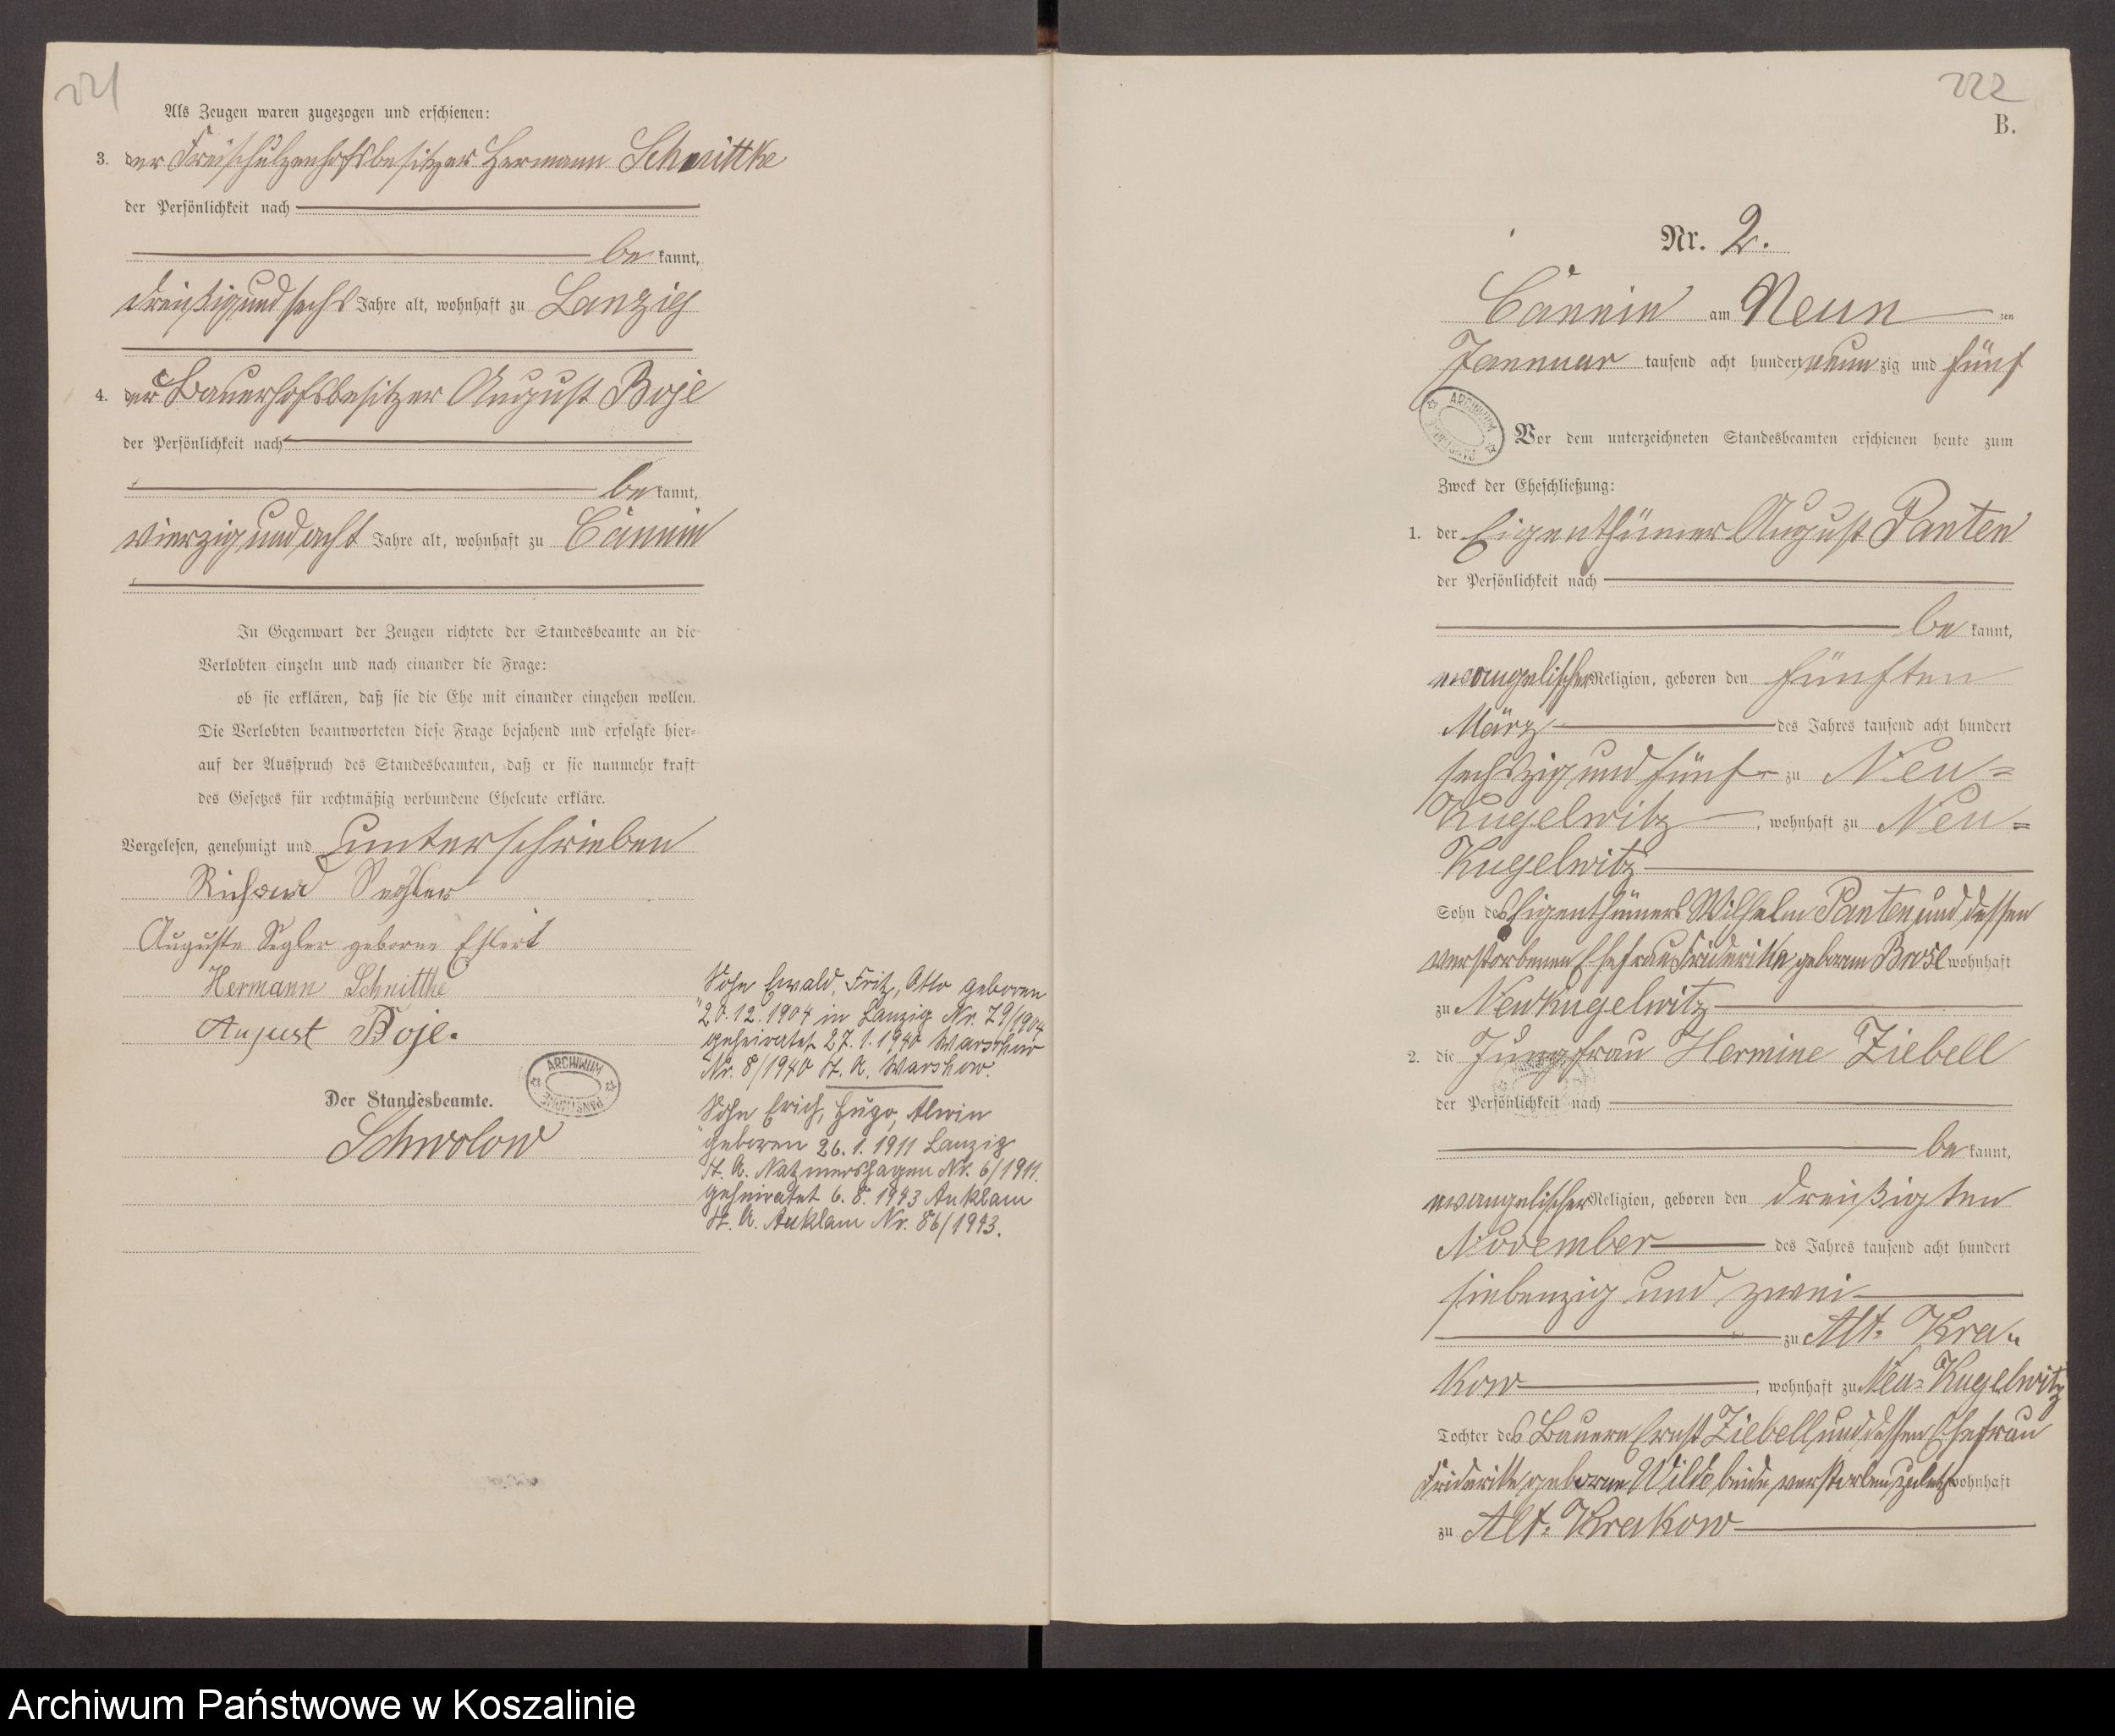 221
Als Zeugen waren zugezogen und erschienen:
3. der Freischulzenhofsbesitzer Hermann Schnittke
der Persönlichkeit nach
be kannt,
dreißig und sechs Jahre alt, wohnhaft zu Lanzig
4. der Bauerhofsbesitzer August Boje
der Persönlichkeit nach
be kannt,
vierzig und acht Jahre alt, wohnhaft zu Cannin
In Gegenwart der Zeugen richtete der Standesbeamte an die
Verlobten einzeln und nach einander die Frage:
ob sie erklären, daß sie die Ehe mit einander eingehen wollen.
Die Verlobten beantworteten diese Frage bejahend und erfolgte hier-
auf der Ausspruch des Standesbeamten, daß er sie nunmehr kraft
des Gesetzes für rechtmäßig verbundene Eheleute erkläre.
Vorgelesen, genehmigt und unterschrieben
Richard Segler
Auguste Segler geborne Ehlert
Hermann Schnittke
August Boje.
Der Standesbeamte.
Schwolow
ARCHIWUM PAŃSTWOWE
Sohn Ewald, Fritz, Otto geboren
20.12.1904 in Lanzig Nr. 29/1904
geheiratet 27.1.1940 Warschow
Nr. 8/1940 St. A. Warschow.
Sohn Erich, Hugo, Alwin
geboren 26.1.1911 Lanzig
St. A. Natzmershagen Nr. 6/1911.
geheiratet 6.8.1943 Anklam
St. A. Anklam Nr. 86/1943.
222
B.
Nr. 2.
Cannin am Neun ten
Januar tausend acht hundert neun zig und fünf
ARCHIWUM PAŃSTWOWE
Vor dem unterzeichneten Standesbeamten erschienen heute zum
Zweck der Eheschließung:
1. der Eigenthümer August Panten
der Persönlichkeit nach
be kannt,
evangelischer Religion, geboren den fünften
März des Jahres tausend acht hundert
sechszig und fünf zu Neu=
Kugelwitz, wohnhaft zu Neu=
Kugelwitz
Sohn des Eigenthümers Wilhelm Panten und dessen
verstorbenen Ehefrau Friderike geborne Brose wohnhaft
zu Neukugelwitz
2. die Jungfrau Hermine Ziebell
der Persönlichkeit nach
be kannt,
evangelischer Religion, geboren den dreißigten
November des Jahres tausend acht hundert
siebenzig und zwei
zu Alt= Kra=
kow, wohnhaft zu Neu= Kugelwitz
Tochter des Bauern Ernst Ziebell und dessen Ehefrau
Friderike geborne Wilde beide verstorben zuletzt wohnhaft
zu Alt= Krakow
Archiwum Państwowe w Koszalinie